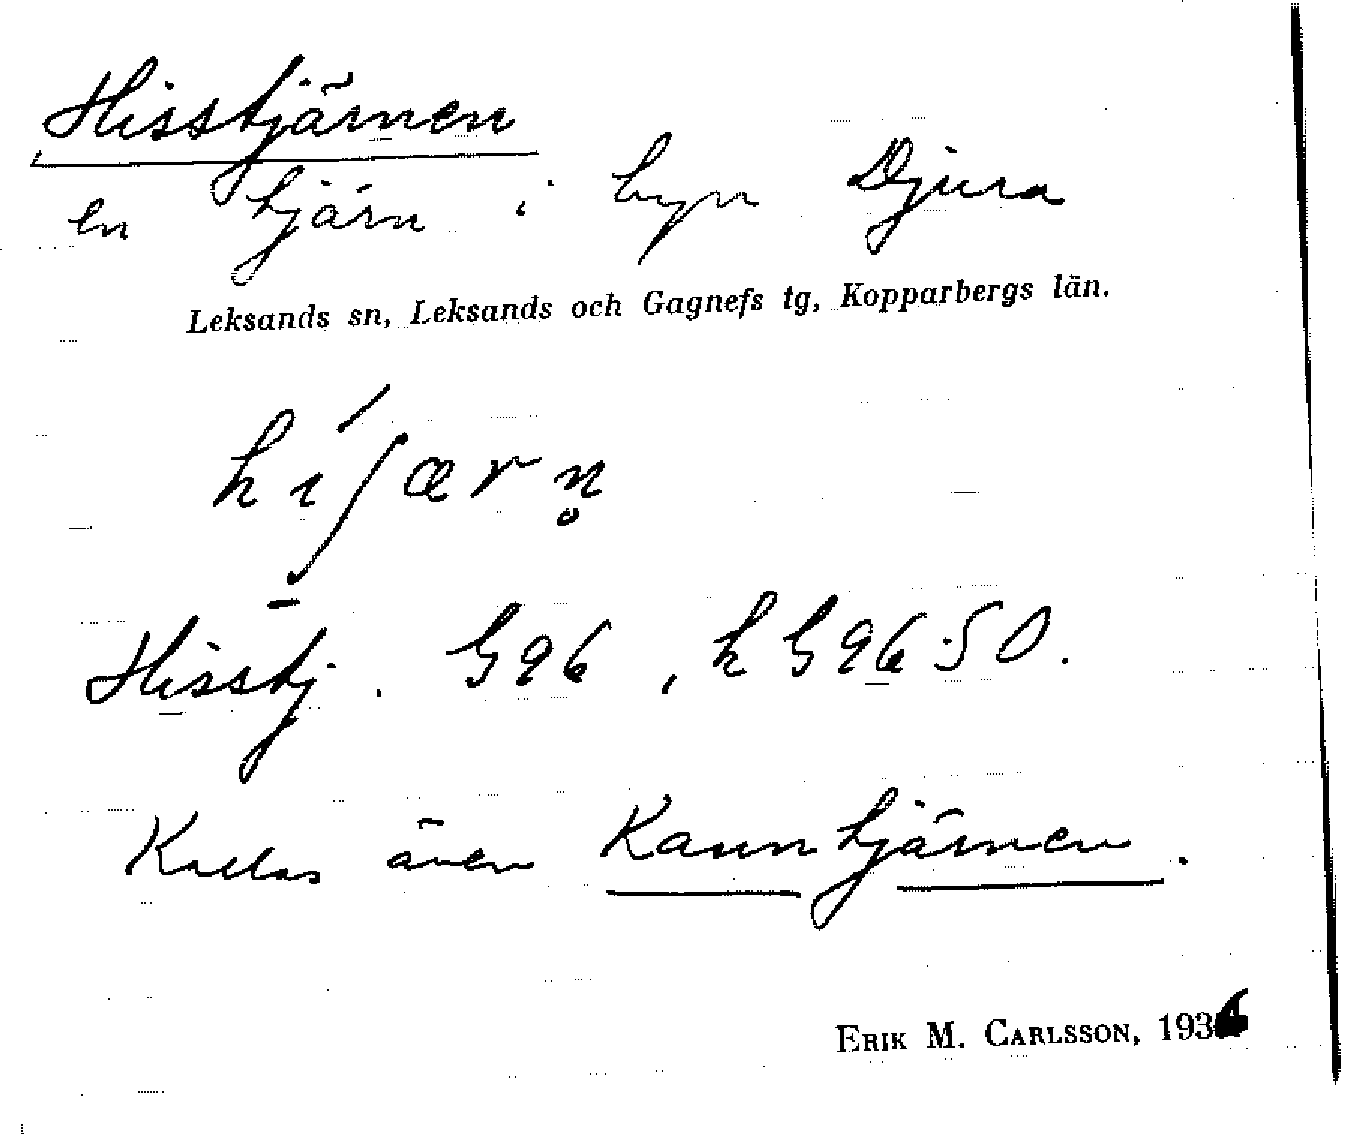 Hisstjärnen
en tjärn i byn Djura
Leksands sn, Leksands och Gagnefs tg, Kopparbergs län.
hɪʃærn̥
Hisstj. G96, h G96:50.
Kallas även Kauntjärnen.
ERIK M. CARLSSON, 1936